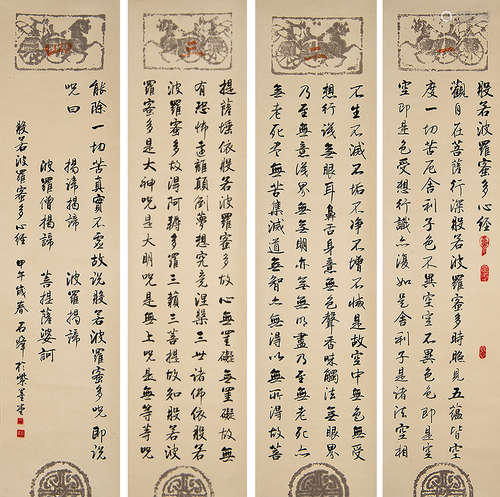 般若波羅蜜多心經
觀自在菩薩行深般若波羅蜜多時照見五蘊皆空
度一切苦厄舍利子色不異空空不異色色即是空
空即是色受想行識亦復如是舍利子是諸法空相
不生不滅不垢不淨不增不減是故空中無色無受
想行識無眼耳鼻舌身意無色聲香味觸法無眼界
乃至無意識界無無明亦無無明盡乃至無老死亦
無老死盡無苦集滅道無智亦無得以無所得故菩
提薩埵依般若波羅蜜多故心無罣礙無罣礙故無
有恐怖遠離顛倒夢想究竟涅槃三世諸佛依般若
波羅蜜多故得阿耨多羅三藐三菩提故知般若波
羅蜜多是大神呪是大明呪是無上呪是無等等呪
能除一切苦真實不虛故說般若波羅蜜多呪即說
呪曰 揭諦揭諦 波羅揭諦
波羅僧揭諦 菩提薩婆訶
般若波羅蜜多心經 甲午歲春 石峰 於紫墨堂